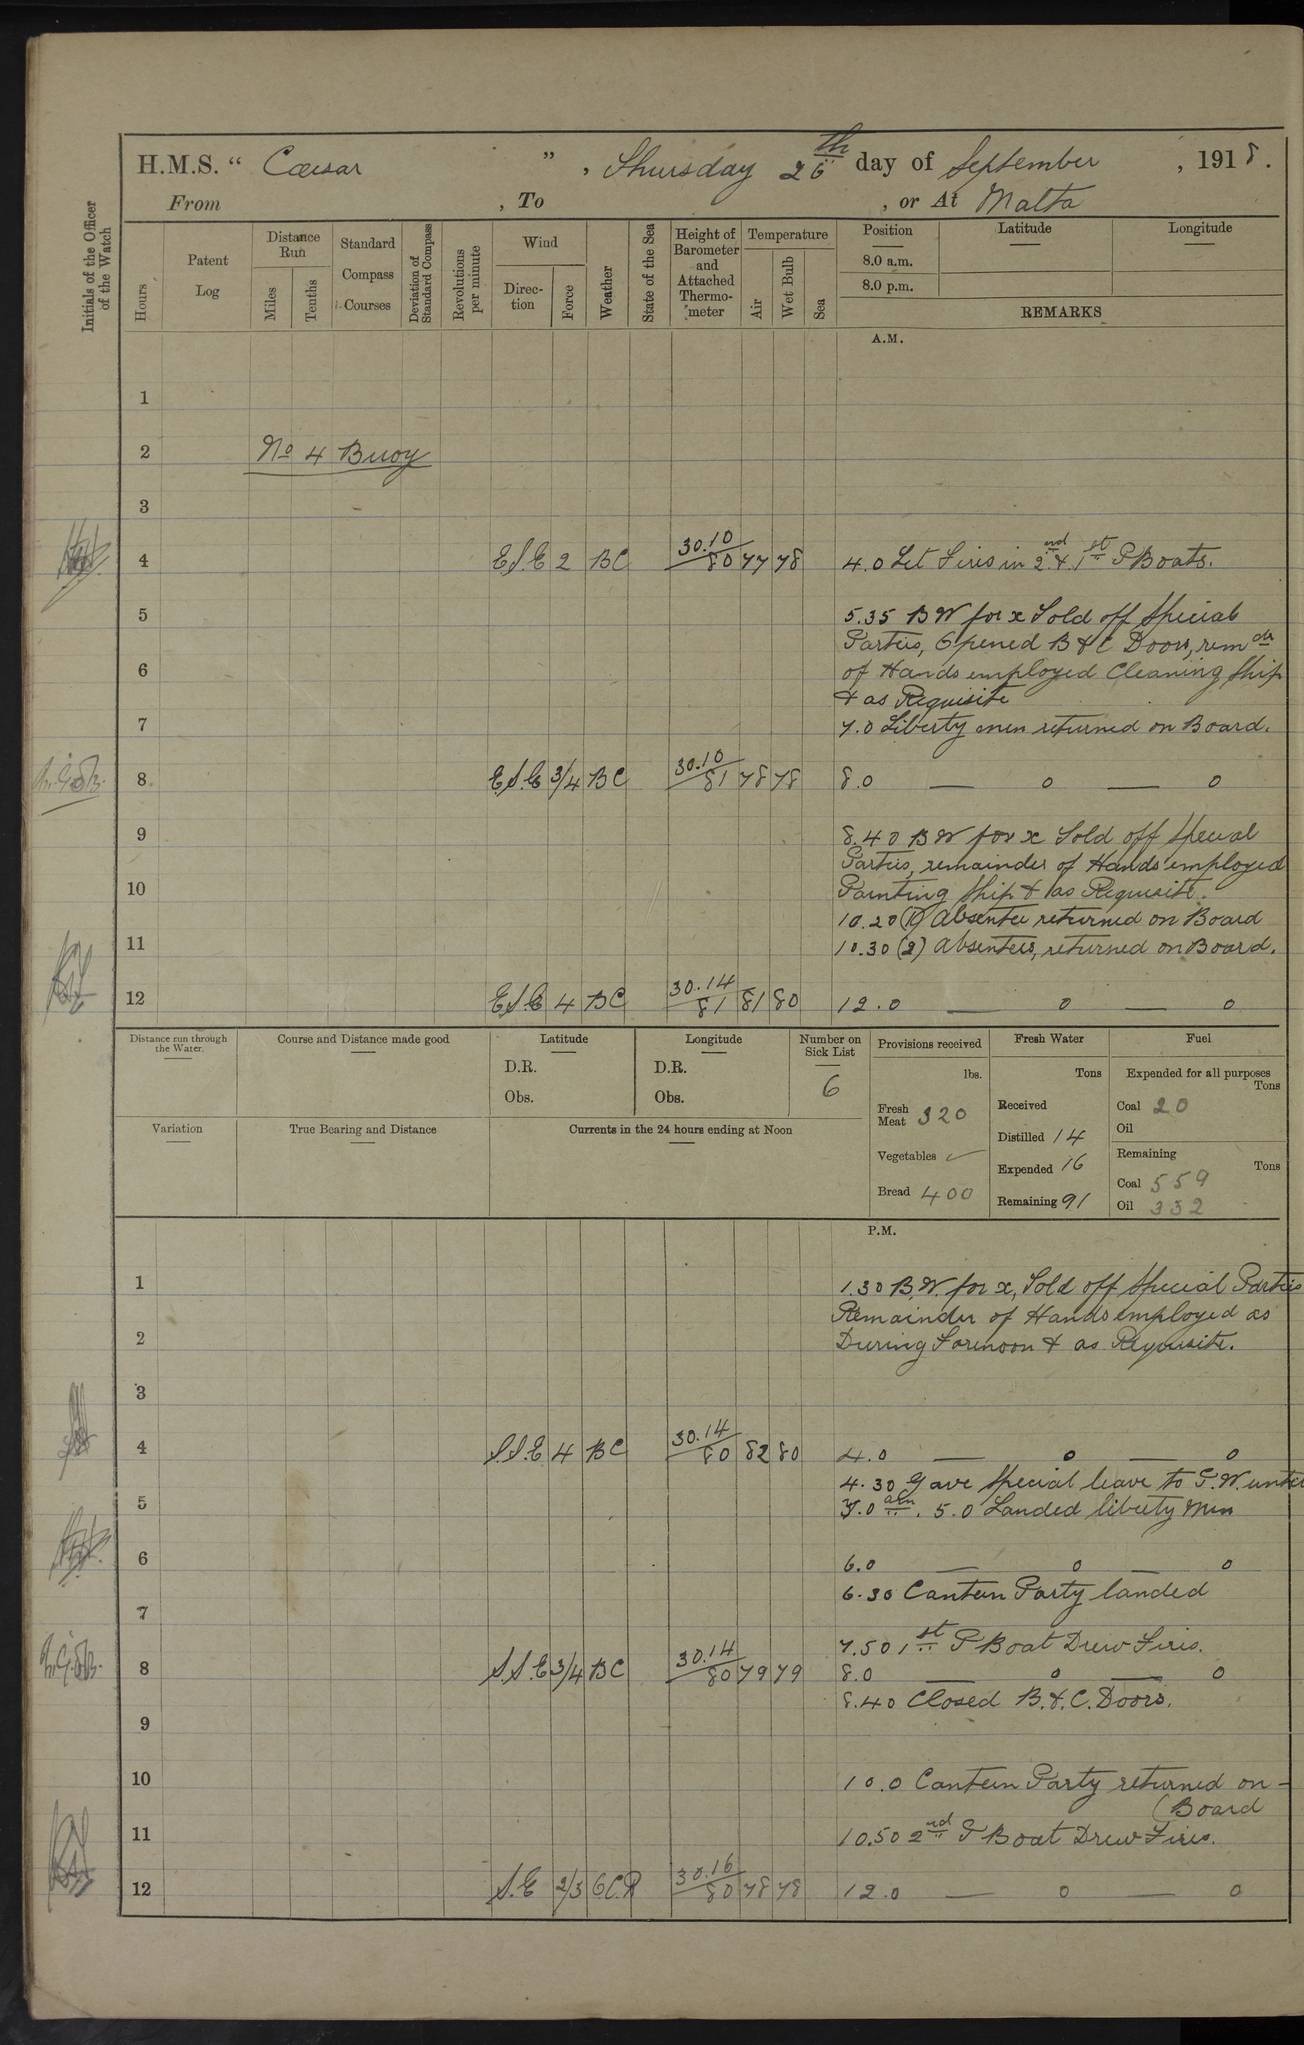 H.M.S. " Cæsar ", Thursday 26th day of September, 1918.
From , To , or At Malta
Initials of the Officer of the Watch
Hours
Patent Log
Distance Run
Miles
Tenths
Standard Compass Courses
Deviation of Standard Compass
Revolutions per minute
Wind
Direc-tion
Force
Weather
State of the Sea
Height of Barometer and Attached Thermo-meter
Temperature
Air
Wet Bulb
Sea
Position
8.0 a.m.
8.0 p.m.
Latitude
Longitude
REMARKS
A.M.
1
2 No 4 Buoy
3
4 E.S.E 2 BC 30.10/80 77 78 4.0 Lit Fires in 2nd & 1st P Boats.
5 5.35 B W for x Told off Special
Parties, Opened B & C Doors, remdr
6 of Hands employed Cleaning Ship
& as Requisite
7 7.0 Liberty men returned on Board.
8 E.S.E 3/4 BC 30.10/81 78 78 8.0 — 0 — 0
9 8.40 B W for x Told off Special
Parties, remainder of Hands employed
10 Painting Ship & as Requisite.
10.20 (1) Absentee returned on Board
11 10.30 (2) Absentees, returned on Board.
12 E.S.E 4 BC 30.14/81 81 80 12.0 — 0 — 0
Distance run through the Water.
Course and Distance made good
Latitude
D.R.
Obs.
Longitude
D.R.
Obs.
Number on Sick List
6
Variation
True Bearing and Distance
Currents in the 24 hours ending at Noon
Provisions received
lbs.
Fresh Meat 320
Vegetables ✓
Bread 400
Fresh Water
Tons
Received
Distilled 14
Expended 16
Remaining 91
Fuel
Expended for all purposes
Tons
Coal 20
Oil
Remaining
Tons
Coal 559
Oil 332
P.M.
1 1.30 B.W. for x, Told off Special Parties
Remainder of Hands employed as
2 During Forenoon & as Requisite.
3
4 S.S.E 4 BC 30.14/80 82 80 4.0 — 0 — 0
4.30 Gave Special leave to P.W. until
5 7.0 am. 5.0 Landed liberty Men
6 6.0 — 0 — 0
6.30 Canteen Party landed
7
7.50 1st P Boat Drew Fires.
8 S.S.E 3/4 BC 30.14/80 79 79 8.0 — 0 — 0
8.40 Closed B.&.C. Doors.
9
10 10.0 Canteen Party returned on -
(Board
11 10.50 2nd P Boat Drew Fires.
12 S.E 2/3 30.16/80 78 78 12.0 — 0 — 0